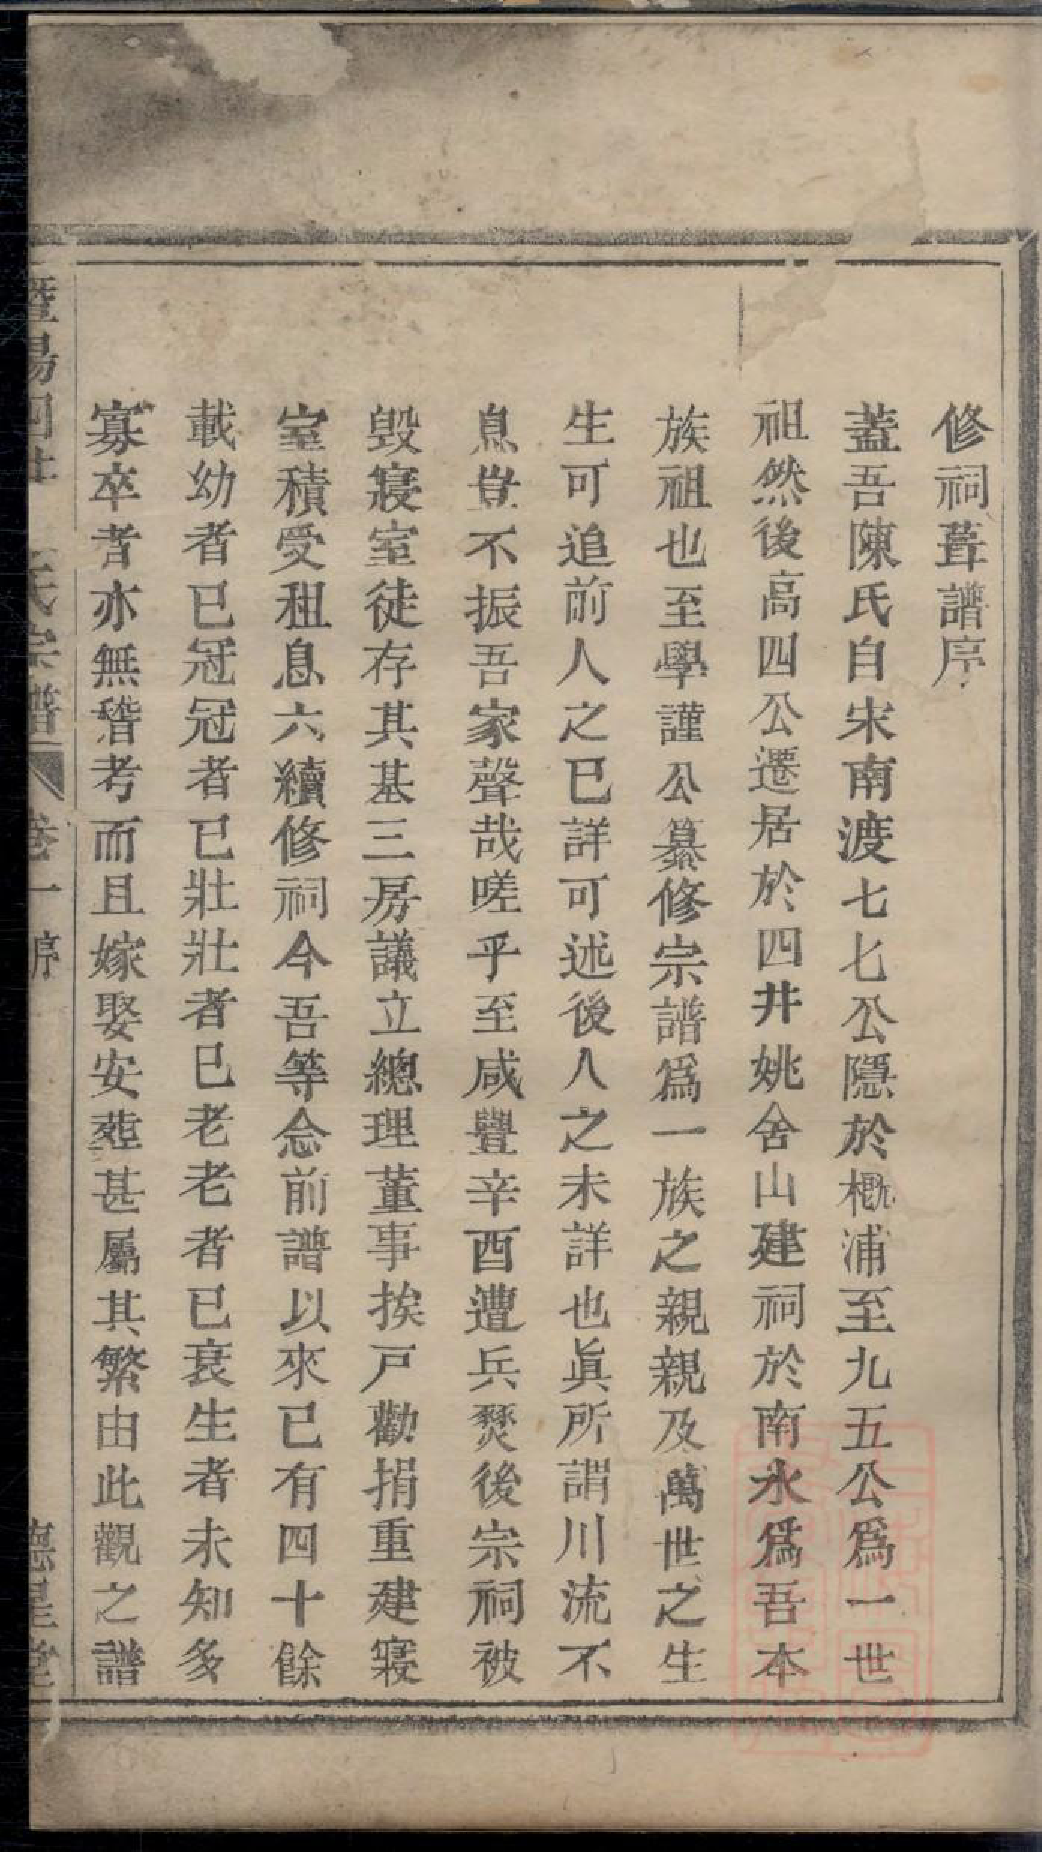 修祠葺譜序
蓋吾陳氏自宋南渡七七公隱於概浦至九五公爲一世
祖然後高四公遷居於四井姚舍山建祠於南永爲吾本
族祖也至學謹公纂修宗譜爲一族之親親及萬世之生
生可追前人之已詳可述後人之未詳也眞所謂川流不
息豈不振吾家聲哉嗟乎至咸豐辛酉遭兵燹後宗祠被
毁寢室徒存其基三房議立總理董事挨戸勸捐重建寢
室積受租息六續修祠今吾等念前譜以來已有四十餘
載幼者已冠冠者已壯壯者已老老者已衰生者未知多
寡卒者亦無稽考而且嫁娶安葬甚屬其繁由此觀之譜
暨陽四 氏宗譜 卷一 序 德星堂